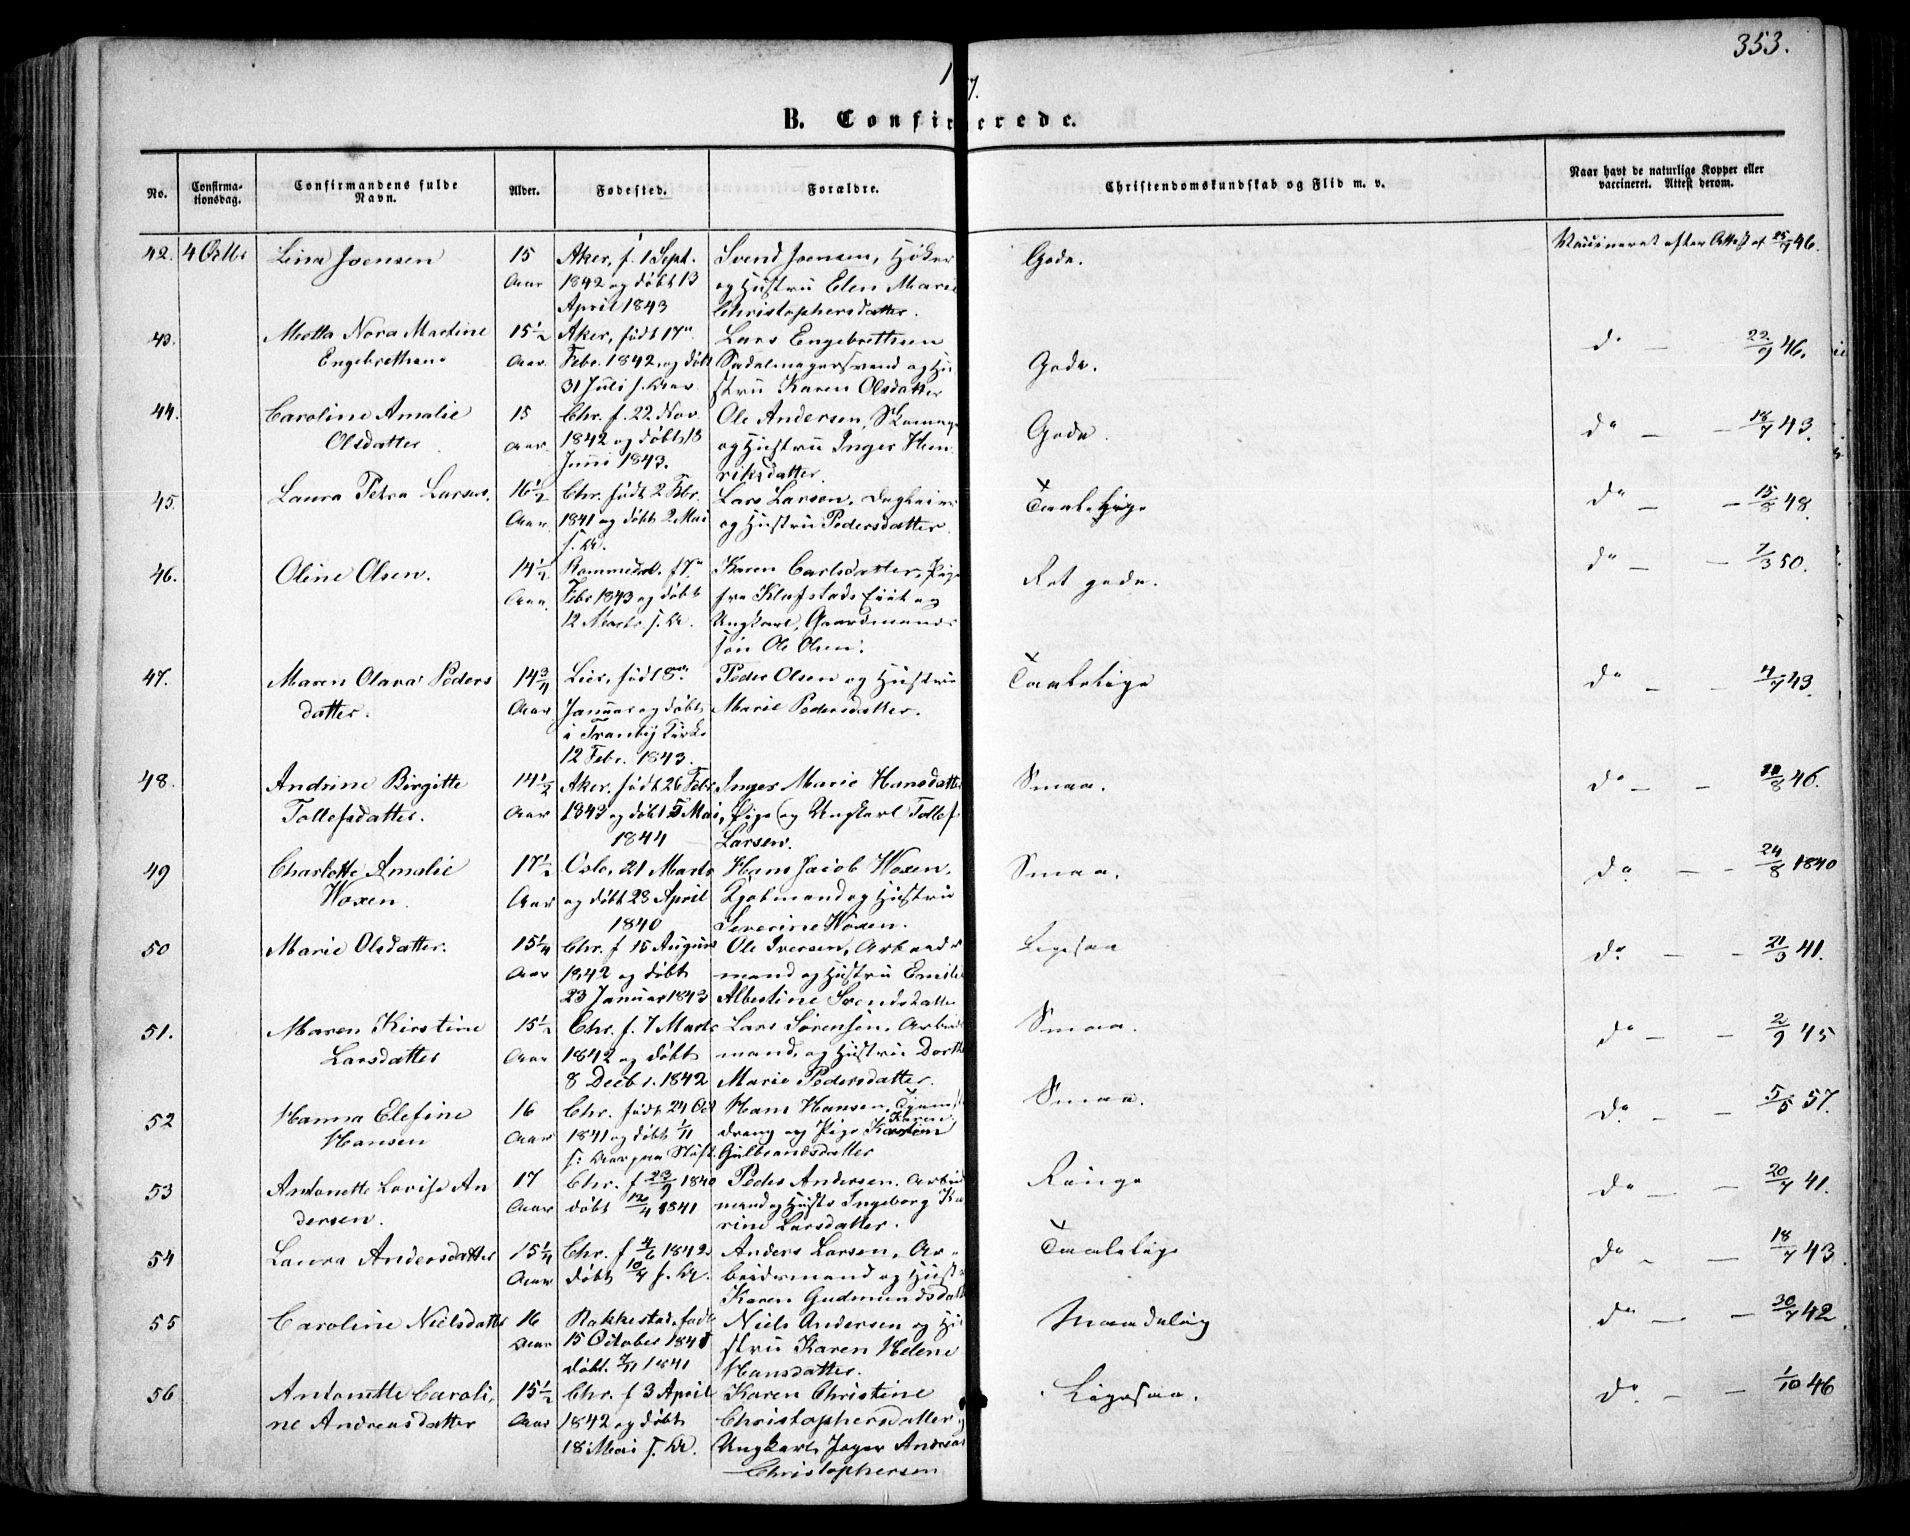 353.
7.
B. Confirmerede.
No.
Confirma-
tionsdag.
Confirmandens fulde
Navn.
Alder.
Fødested.
Forældre.
Christendomskundskab og Flid m. v.
Naar havt de naturlige Kopper eller
vaccineret. Attest derom.
42. 4 Octbr Lina Joensen 15 Aar
Aker, f. 1 Sept.
1842 og døbt 13
April 1843
Svend Joensen, Høker
og Hustru Elen Marie
Christophersdatter.
Gode.
Vaccineret efter Attest af 25/9 46.
43. Metta Nora Martine
Engebrethsen
15 1/2 Aar
Aker, født 17n
Febr. 1842 og døbt
31 Juli s. Aar
Lars Engebrethsen
Sadelmagersvend og Hu-
stru Karen Olsdatter
Gode.
do — 22/9 46.
44. Caroline Amalie
Olsdatter
15 Aar
Chr. f. 22 Nov.
1842 og døbt 13
Juni 1843.
Ole Andersen,
og Hustru Inger Hen-
riksdatter.
Gode.
do — 18/7 43.
45. Laura Petra Larsen.
16 1/2 Aar
Chr. født 2 Febr.
1841 og døbt 2 Mai
s. A.
Lars Larsen,
og Hustru Pedersdatter.
Taalelige
do — 15/8 48.
46. Oline Olsen.
14 1/2 Aar
f. 7n
Febr 1843 og døbt
12 Marts s. A.
Karen Carlsdatter, Pige
fra Klafstads Eiet og
Ungkarl, Gaardmands
søn Ole Olsen.
Ret gode.
do — 7/3 50.
47. Maren Olava Peders
datter.
14 3/4 Aar
Lier, født 8de
Januar og døbt
i Tranby Kirke
12 Febr. 1843.
Peder Olsen og Hustru
Marie Pedersdatter.
Taalelige
do — 4/7 43.
48. Andrine Birgitte
Tollefsdatter.
14 1/2 Aar
Aker, født 26 Febr
1843 og døbt 5 Mai
1844
Inger Marie Hansdatter
Pige og Ungkarl Tollef
Larsen.
Smaa.
do — 46.
49 Charlotte Amalie
Woxen.
17 1/2 Aar
Oslo, 21 Marts
og døbt 23 April
1840
Hans Jacob Woxen,
Kjøbmand og Hustru
Severine Woxen.
Smaa.
do — 24/8 1840
50 Marie Olsdatter.
15 1/4 Aar
Chr. f 15 August
1842 og døbt
23 Januar 1843
Ole Iversen, Arbeids
mand og Hustru Emilie
Albertine Svendsdatter
Ligesaa
do — 21/3 41.
51. Maren Kirstine
Larsdatter
15 1/2 Aar
Chr. f. 7 Marts
1842 og døbt
8 Decbr. 1842
Lars Sørensen, Arbeids
mand, og Hustru Dorthe
Marie Pedersdatter.
Smaa.
do — 2/9 45
52 Hanna Elefine
Hansen
16 Aar
Chr. født 24 Oct
1841 og døbt 1/11
s: Aar paa Stift.
Hans Hansen, Tjeneste
dreng og Pige Karen
Gulbrandsdatter
Smaa.
do — 5/5 57.
53 Antonette Lovise An
dersen.
17 Aar
Chr. f 23/9 1840
døbt 12/4 1841
Peder Andersen. Arbeids
mand og Hustr Ingeborg Ka
rine Larsdatter.
Ringe
do — 20/7 41.
54 Laura Andersdatter
15 1/4 Aar
Chr. f 4/6 1842
døbt 10/7 s. A.
Anders Larsen, Ar-
beidsmand og Hustr
Karen Gudmundsdatter
Taalelige
do — 18/7 43.
55 Caroline Nielsdatter
16 Aar
Rakkestad, født
15 October 1841
døbt. 7/11 1841
Niels Andersen og Hu
stru Karen Helene
Hansdatter.
Maadelig
do — 30/7 42.
56 Antonette Caroli,
ne Andreasdatter
15 1/2 Aar
Chr. f 3 April
1842 og døbt
18 Mai s. A.
Karen Christine
Christophersdatter
Ungkarl, Jæger Andreas
Christophersen
Ligesaa.
do — 1/10 46